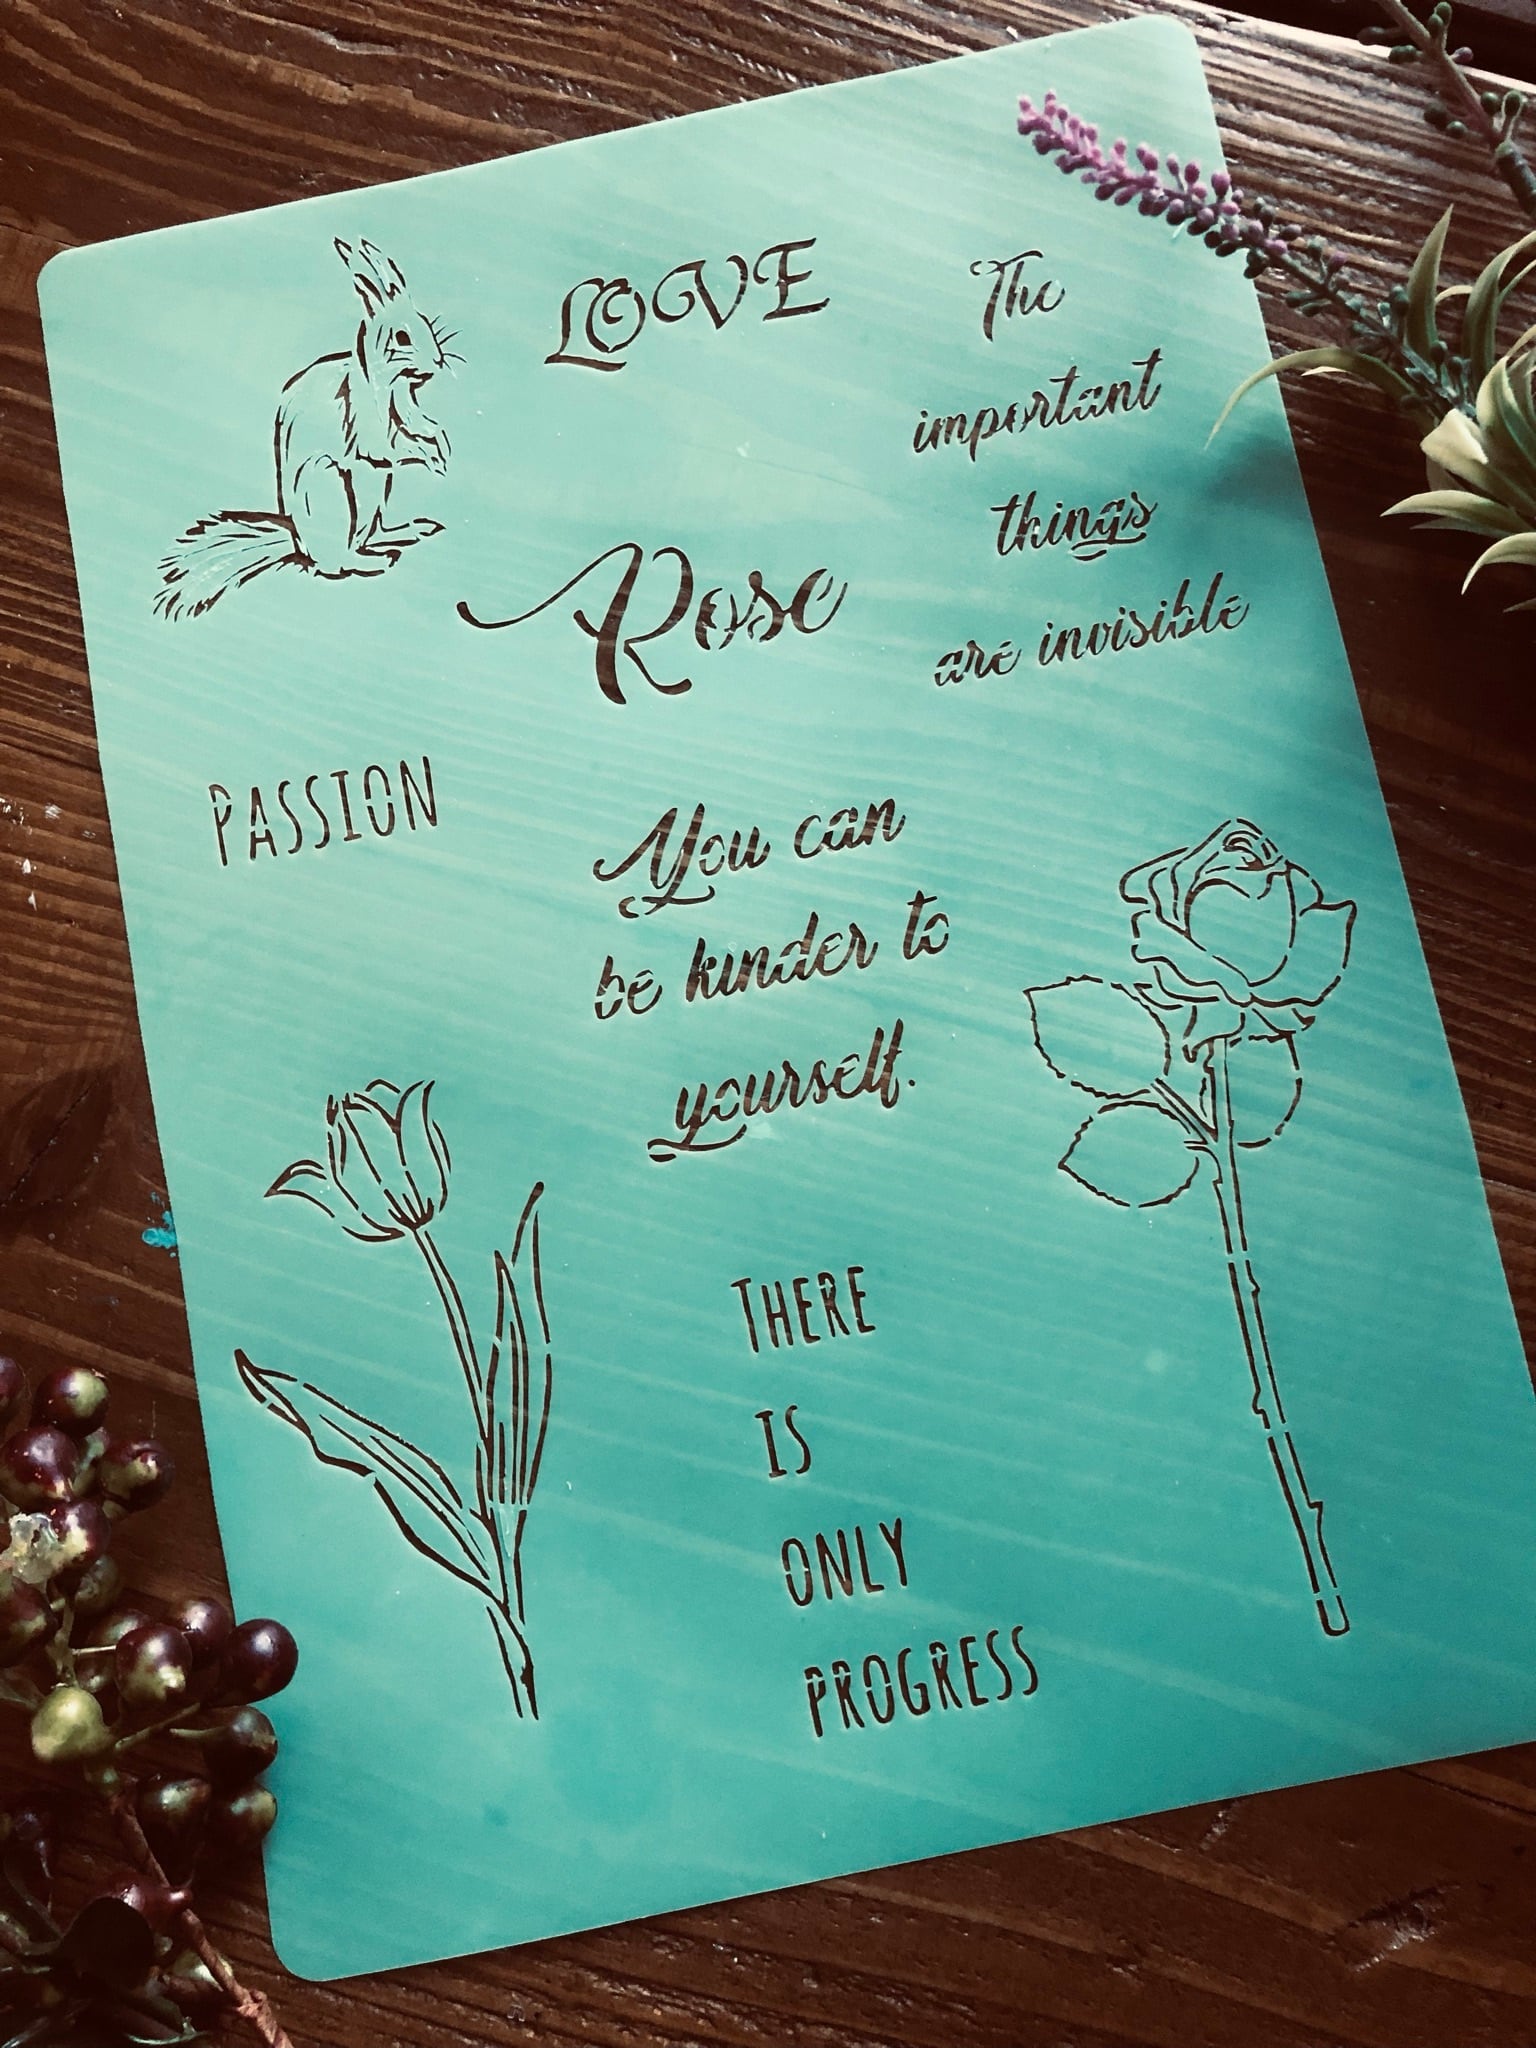 LOVE
The
important
things
are invisible
Rose
PASSION
You can
be kinder to
yourself.
THERE
IS
ONLY
PROGRESS